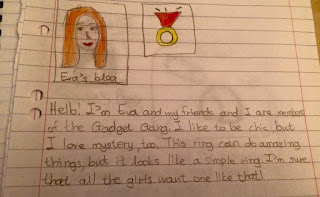 Eva's blog
Hello! I'm Eva and my friends and I are members
of the Gadget Gang. I like to be chic, but
I love mystery, too. This ring can do amazing
things, but it looks like a simple ring. I'm sure
that all the girls want one like that!